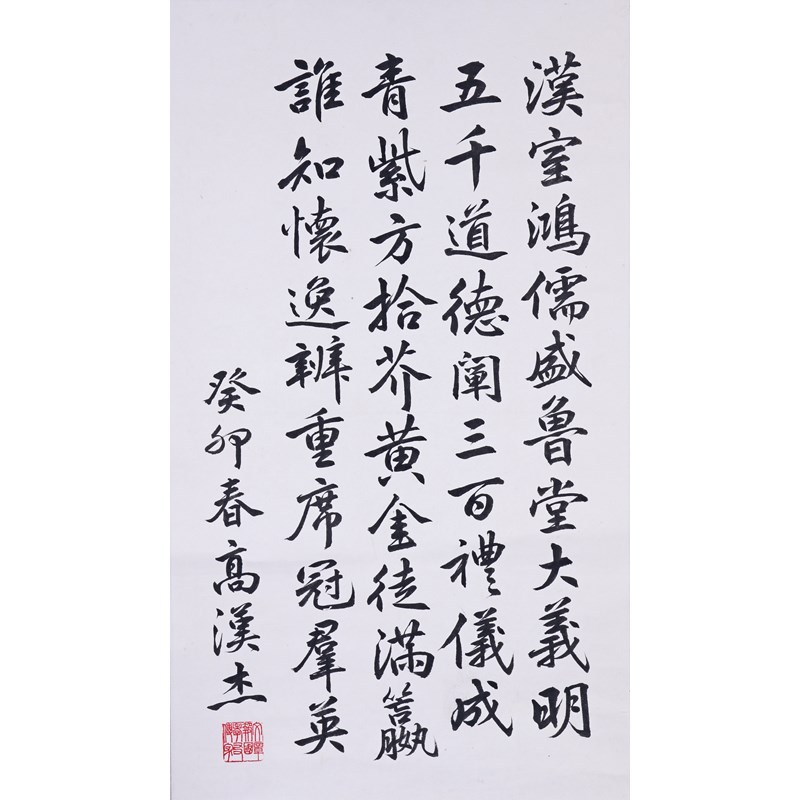 漢室鴻儒盛魯堂大義明
五千道德闡三百禮儀成
青紫方拾芥黃金徒滿籝
誰知懷逸辨重席冠羣英
癸卯春高漢杰